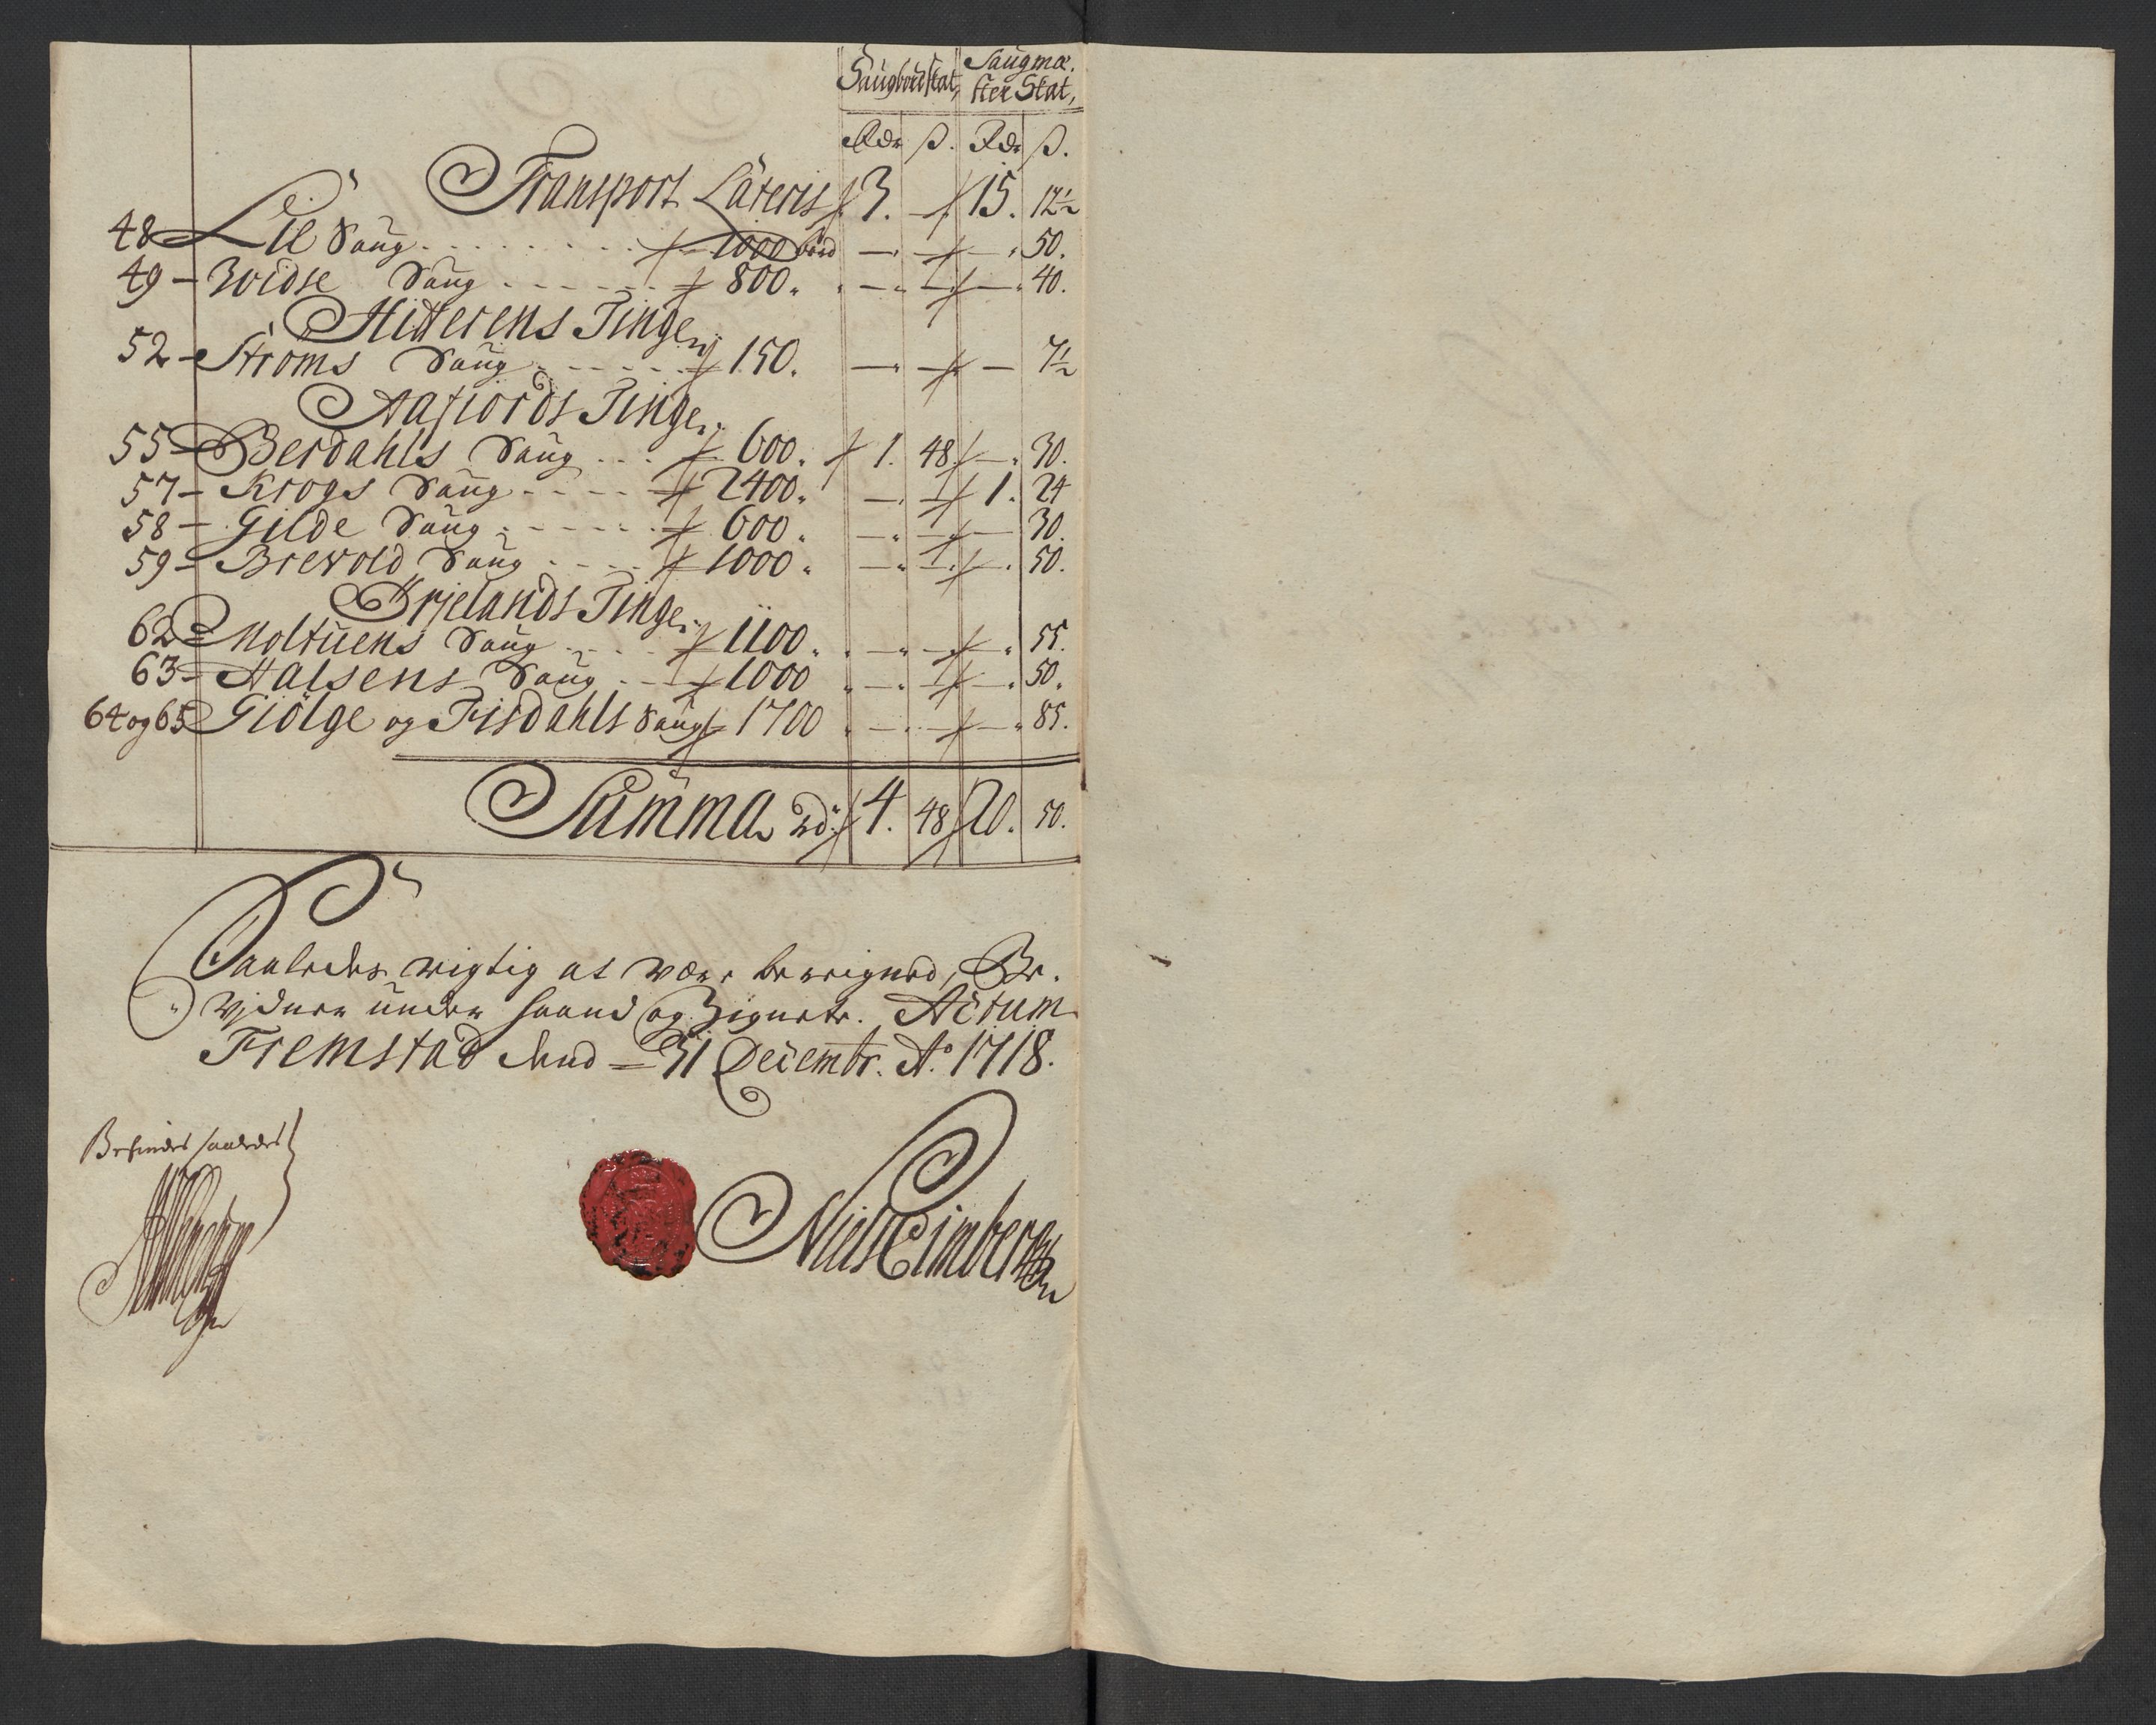 Saugbordskat, Saugmæ-
ster Skat,
Rdr ß. Rdr ß.
Transport Lateris 3. — 15. 12½
48 – Lil Saug . . . . 1000 bord — — — 50.
49 – Widse Saug . . . . 800. — — — 40.
Hitterens Tinge.
52 – Ströms Saug . . . . 150. — — — 7½
Aafiords Tinge.
55 – Berdahls Saug . . . 600. 1. 48. — 30.
57 – Krogs Saug . . . . 2400. — — 1. 24
58 – Gilde Saug . . . . 600. — — — 30.
59 – Brevold Saug . . . . 1000. — — — 50.
Ørjelands Tinge.
62 – Moltuens Saug . . . 1100. — — — 55.
63 – Halsens Saug . . . 1000 — — — 50.
64 og 65 Giölge og Fisdahls Saug 1700 — — — 85.
Summa Rdr 4. 48 20. 50.
Saaledes rigtig at være bereigned, Be-
vidner under Haand og Zignete. Actum
Fremstad dend 31 Decembr. Ao. 1718.
Befindes saaledes
Niels Eimberg